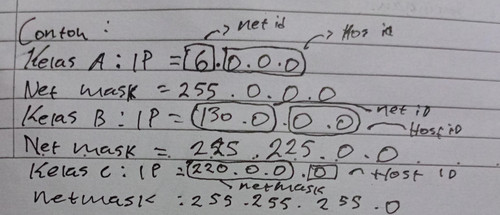 Contoh :
net id
Hos id
Kelas A : IP = 6 . 0 . 0 . 0
Net mask = 255 . 0 . 0 . 0
Kelas B : IP = 130 . 0 . 0 . 0
net ID
Host ID
Net mask = 225 . 225 . 0 . 0
Kelas C : IP = 220 . 0 . 0 . 0
Host ID
netmask
netmask : 255 . 255 . 255 . 0